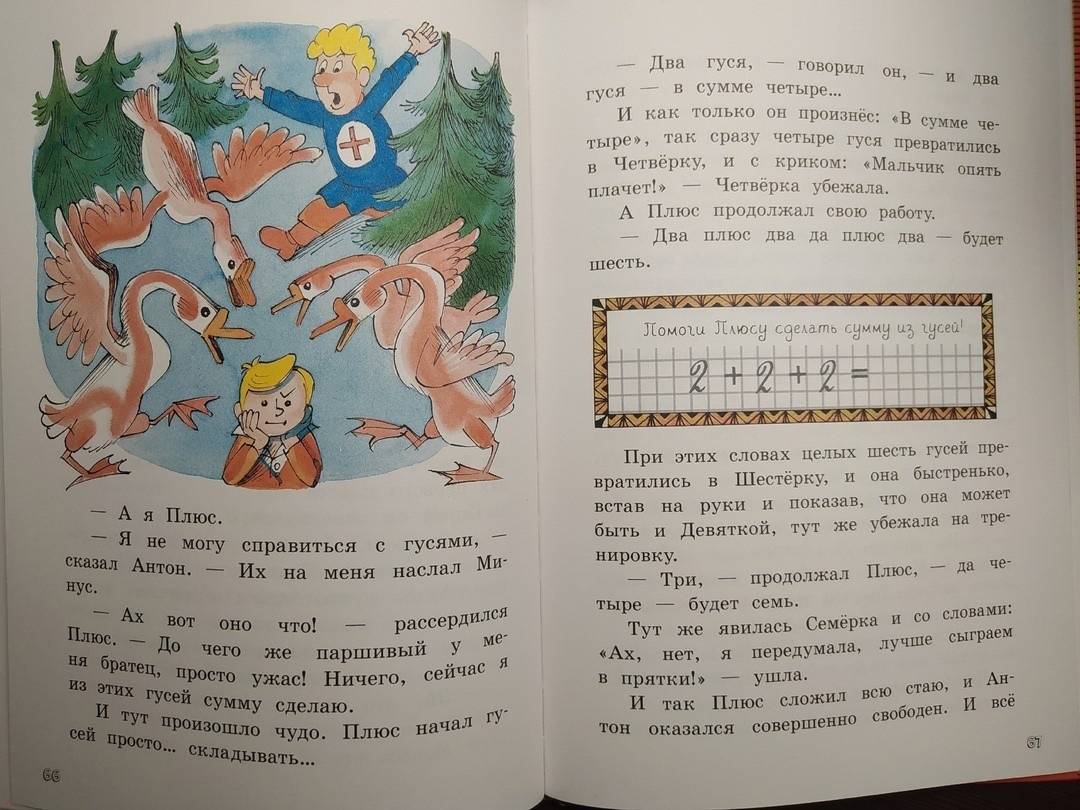 — А я Плюс.
— Я не могу справиться с гусями, —
сказал Антон. — Их на меня наслал Ми-
нус.
— Ах вот оно что! — рассердился
Плюс. — До чего же паршивый у ме-
ня братец, просто ужас! Ничего, сейчас я
из этих гусей сумму сделаю.
И тут произошло чудо. Плюс начал гу-
сей просто... складывать...
66
— Два гуся, — говорил он, — и два
гуся — в сумме четыре...
И как только он произнёс: «В сумме че-
тыре», так сразу четыре гуся превратились
в Четвёрку, и с криком: «Мальчик опять
плачет!» — Четвёрка убежала.
А Плюс продолжал свою работу.
— Два плюс два да плюс два — будет
шесть.
Помоги Плюсу сделать сумму из гусей!
2 + 2 + 2 =
При этих словах целых шесть гусей пре-
вратились в Шестёрку, и она быстренько,
встав на руки и показав, что она может
быть и Девяткой, тут же убежала на тре-
нировку.
— Три, — продолжал Плюс, — да че-
тыре — будет семь.
Тут же явилась Семёрка и со словами:
«Ах, нет, я передумала, лучше сыграем
в прятки!» — ушла.
И так Плюс сложил всю стаю, и Ан-
тон оказался совершенно свободен. И всё
67